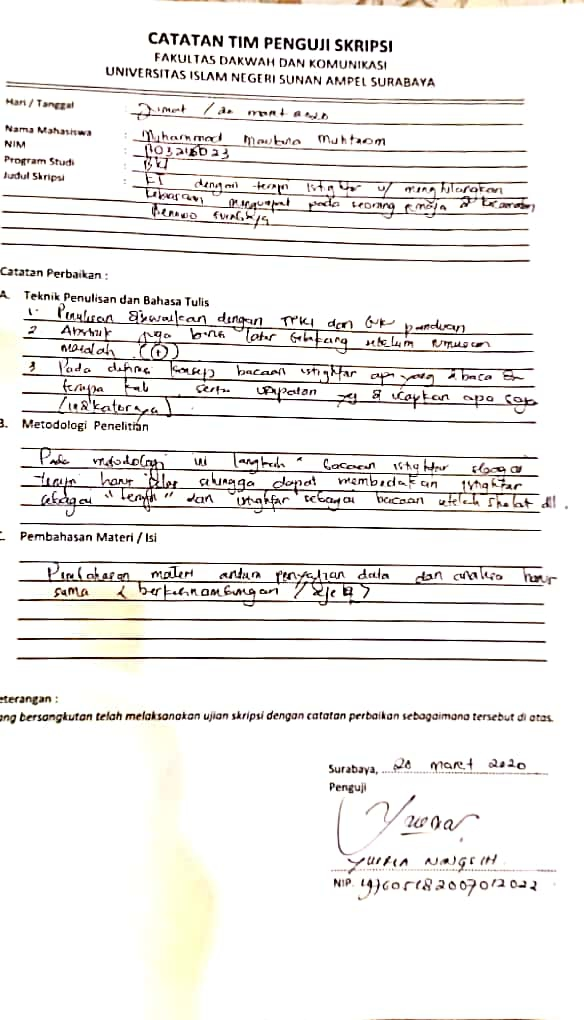 CATATAN TIM PENGUJI SKRIPSI
FAKULTAS DAKWAH DAN KOMUNIKASI
UNIVERSITAS ISLAM NEGERI SUNAN AMPEL SURABAYA
Hari / Tanggal : Jumat / 20 maret 2020
Nama Mahasiswa : Muhammad Maulana Muhtarom
NIM :
Program Studi : BKI
Judul Skripsi : dengan terapi Istighfar u/ menghilangkan
kebiasaan mengumpat pada seorang remaja di kecamatan
Benowo Surabaya
Catatan Perbaikan :
A. Teknik Penulisan dan Bahasa Tulis
1. Penulisan disesuaikan dengan dan panduan
2 Abstrak juga berisi latar belakang sebelum rumusan
masalah. (+)
3 Pada definisi konsep bacaan istighfar apa yang dibaca &
berapa kali, serta umpatan yg di ucapkan apa saja
(indikatornya)
B. Metodologi Penelitian
Pada metodologi ini langkah" bacaan istighfar sebagai
terapi harus jelas sehingga dapat membedakan istighfar
sebagai "terapi" dan istighfar sebagai bacaan setelah sholat dll.
C. Pembahasan Materi / Isi
Pembahasan materi antara penyajian data dan analisis harus
sama & berkesinambungan
eterangan :
ang bersangkutan telah melaksanakan ujian skripsi dengan catatan perbaikan sebagaimana tersebut di atas.
Surabaya, 20 maret 2020
Penguji
YUSRIA NINGSIH
NIP. 197605182007012022